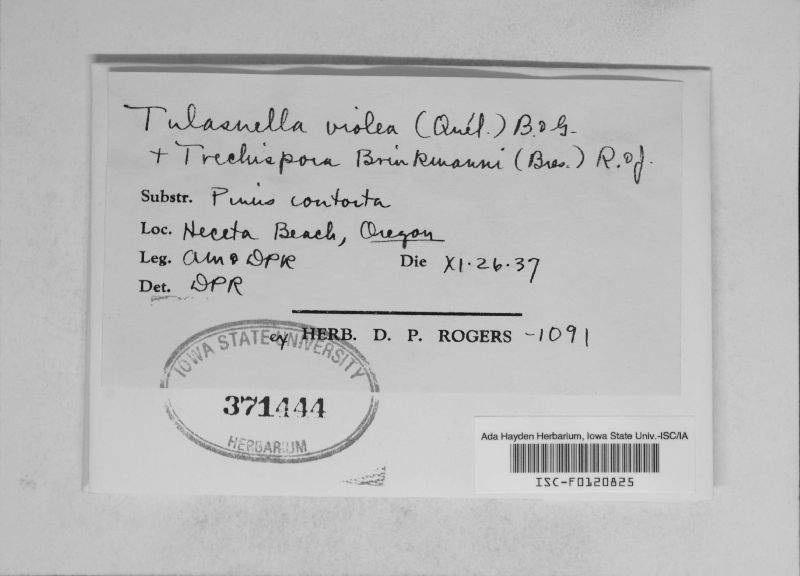 Tulasnella violea (Quél.) B. & G.
+ Trechispora Brinkmanni (Bres.) R. & J.
Substr. Pinus contorta
Loc. Heceta Beach, Oregon
Leg. AM & DPR Die XI·26·37
Det. DPR
ex HERB. D. P. ROGERS -1091
IOWA STATE UNIVERSITY
371444
HERBARIUM
Ada Hayden Herbarium, Iowa State Univ.-ISC/IA
ISC-F0120825